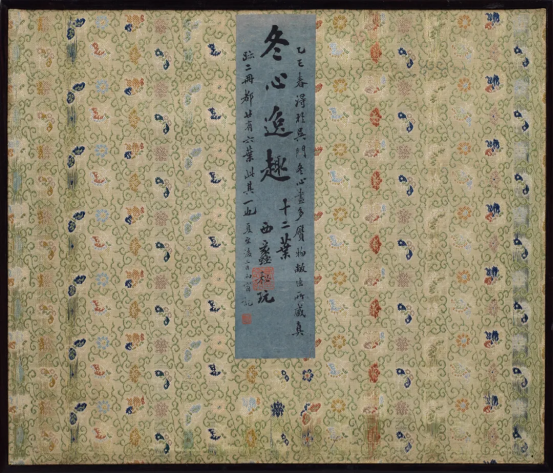 冬心逸趣
十二葉
西蠡秘玩
春得於吳門冬心畫多贋物所藏真
跡二冊都廿有六葉此其一也